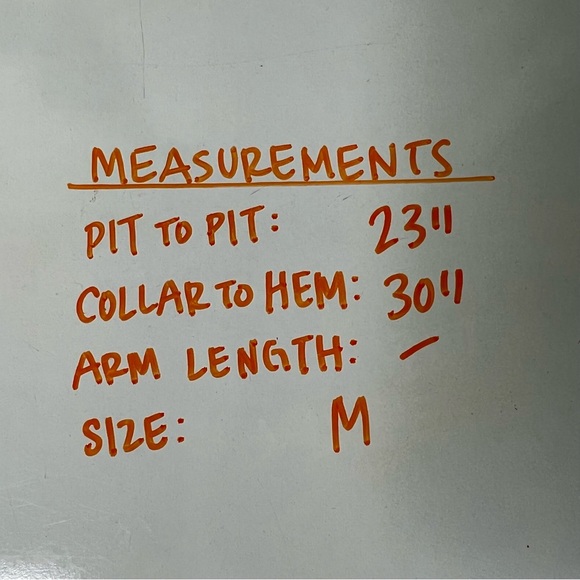 MEASUREMENTS
PIT TO PIT: 23"
COLLAR TO HEM: 30"
ARM LENGTH: –
SIZE: M